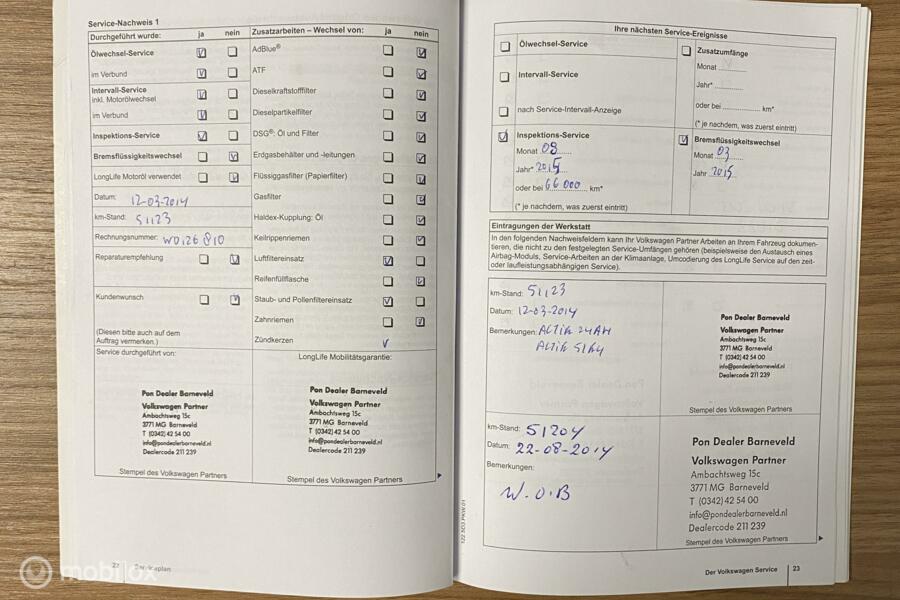 Service-Nachweis 1
Durchgeführt wurde: ja nein
Ölwechsel-Service
im Verbund
Intervall-Service
inkl. Motorölwechsel
im Verbund
Inspektions-Service
Bremsflüssigkeitswechsel
LongLife Motoröl verwendet
Datum: 12-03-2014
km-Stand: 51123
Rechnungsnummer:
Reparaturempfehlung
Kundenwunsch
(Diesen bitte auch auf dem
Auftrag vermerken.)
Service durchgeführt von:
Pon Dealer Barneveld
Volkswagen Partner
Ambachtsweg 15c
3771 MG Barneveld
T (0342) 42 54 00
info@pondealerbarneveld.nl
Dealercode 211 239
Stempel des Volkswagen Partners
Zusatzarbeiten – Wechsel von: ja nein
AdBlue®
ATF
Dieselkraftstofffilter
Dieselpartikelfilter
DSG®: Öl und Filter
Erdgasbehälter und -leitungen
Flüssiggasfilter (Papierfilter)
Gasfilter
Haldex-Kupplung: Öl
Keilrippenriemen
Luftfiltereinsatz
Reifenfüllflasche
Staub- und Pollenfiltereinsatz
Zahnriemen
Zündkerzen V
LongLife Mobilitätsgarantie:
Pon Dealer Barneveld
Volkswagen Partner
Ambachtsweg 15c
3771 MG Barneveld
T (0342) 42 54 00
info@pondealerbarneveld.nl
Dealercode 211 239
Stempel des Volkswagen Partners
22 Serviceplan
mobilox
Ihre nächsten Service-Ereignisse
Ölwechsel-Service
Intervall-Service
nach Service-Intervall-Anzeige
Inspektions-Service
Monat 03
Jahr* 2015
oder bei 66 000 km*
(* je nachdem, was zuerst eintritt)
Zusatzumfänge
Monat
Jahr*
oder bei km*
(* je nachdem, was zuerst eintritt)
Bremsflüssigkeitswechsel
Monat 03
Jahr 2015
Eintragungen der Werkstatt
In den folgenden Nachweisfeldern kann Ihr Volkswagen Partner Arbeiten an Ihrem Fahrzeug dokumen-
tieren, die nicht zu den festgelegten Service-Umfängen gehören (beispielsweise den Austausch eines
Airbag-Moduls, Service-Arbeiten an der Klimaanlage, Umcodierung des LongLife Service auf den zeit-
oder laufleistungsabhängigen Service).
km-Stand: 51123
Datum: 12-03-2014
Bemerkungen:
Pon Dealer Barneveld
Volkswagen Partner
Ambachtsweg 15c
3771 MG Barneveld
T (0342) 42 54 00
info@pondealerbarneveld.nl
Dealercode 211 239
Stempel des Volkswagen Partners
km-Stand: 51204
Datum: 22-08-2014
Bemerkungen:
W.O.B
Pon Dealer Barneveld
Volkswagen Partner
Ambachtsweg 15c
3771 MG Barneveld
T (0342) 42 54 00
info@pondealerbarneveld.nl
Dealercode 211 239
Stempel des Volkswagen Partners
122.5D3.PKW.01
Der Volkswagen Service 23